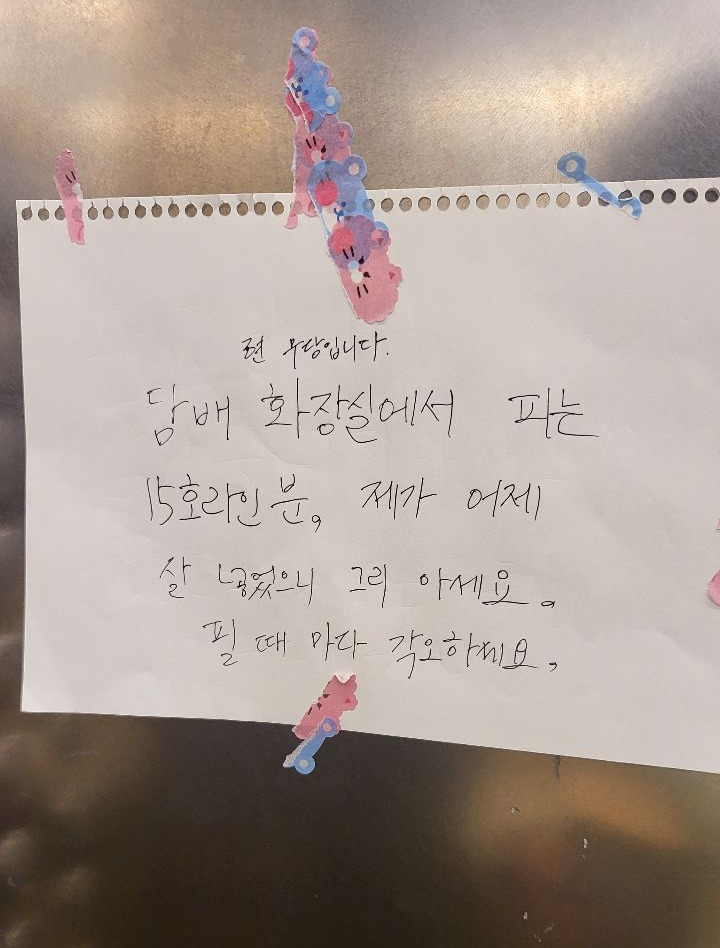 전 무당입니다.
담배 화장실에서 피는
15호라인분, 제가 어제
살 넣었으니 그리 아세요.
필 때 마다 각오하세요,